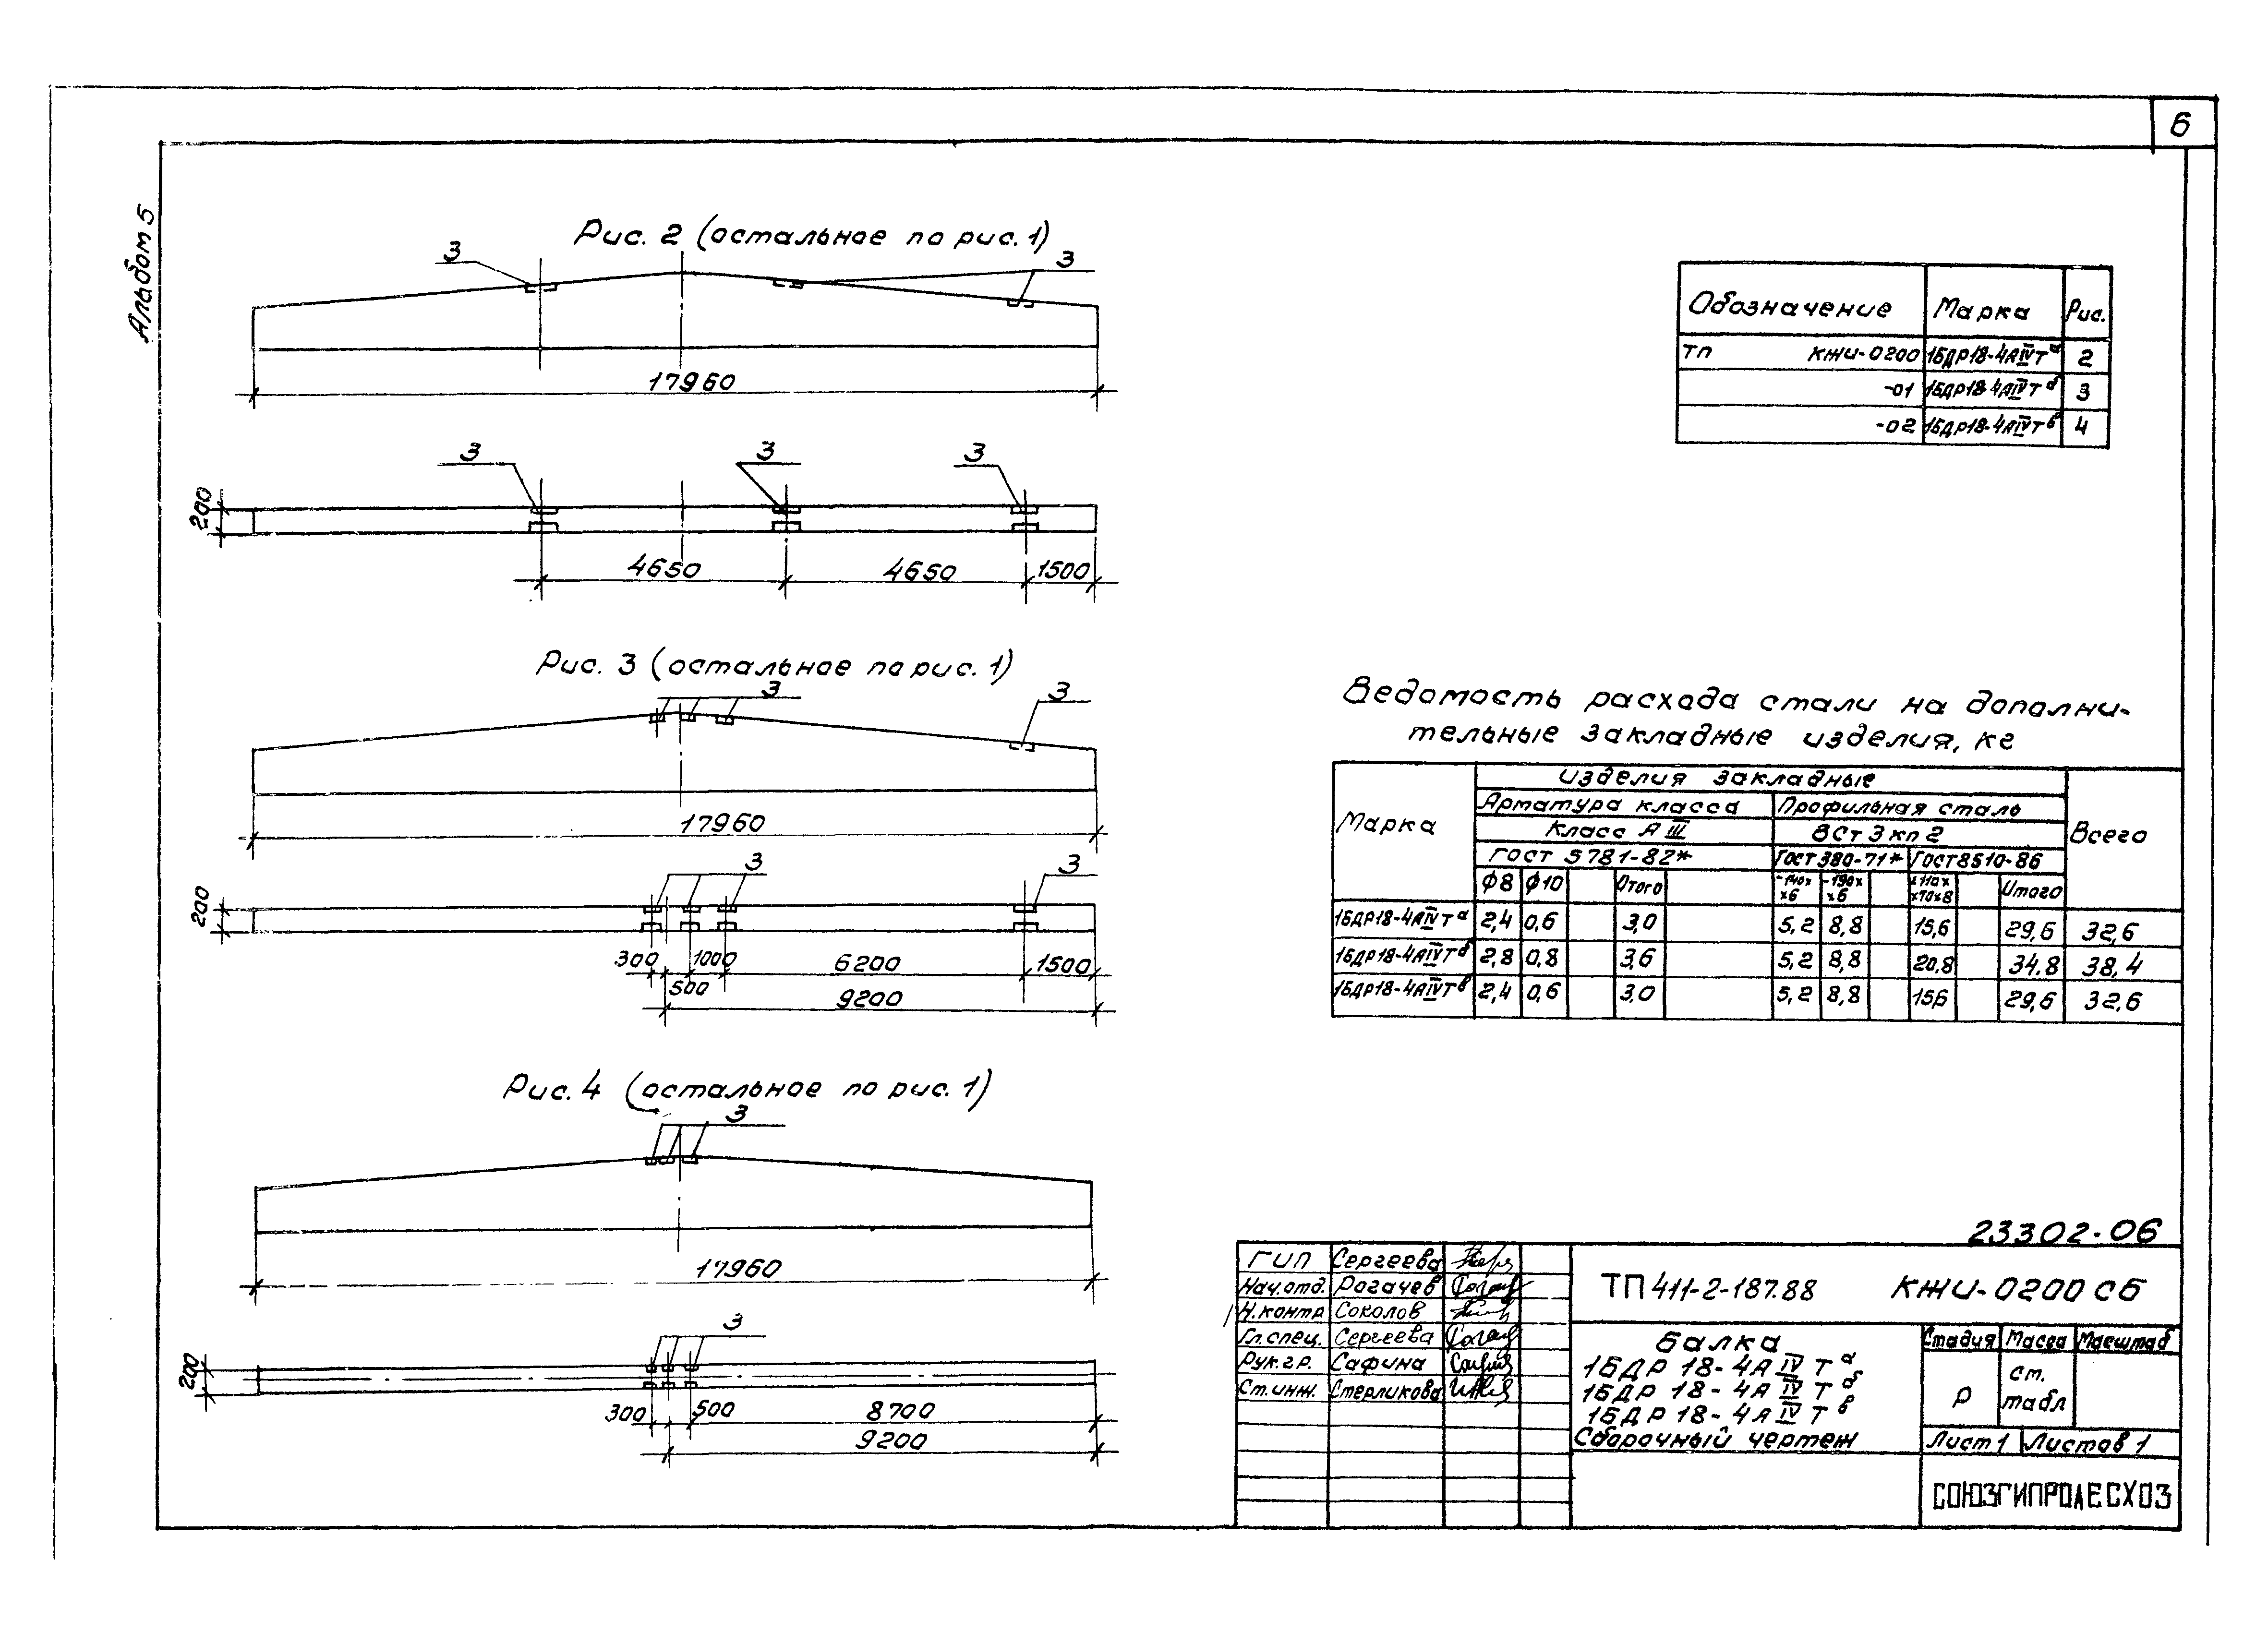 6
Альбом 5
Рис. 2 (остальное по рис. 1)
3
3
17960
3
3
3
200
4650
4650
1500
Рис. 3 (остальное по рис. 1)
3
3
17960
3
3
200
300
1000
6200
1500
500
9200
Рис. 4 (остальное по рис. 1)
3
17960
3
200
300
500
8700
9200
Обозначение Марка Рис.
ТП КЖИ-0200 1БДР18-4АIVТа 2
-01 1БДР18-4АIVТб 3
-02 1БДР18-4АIVТв 4
Ведомость расхода стали на дополни-
тельные закладные изделия, кг
Марка
Изделия закладные
Всего
Арматура класса Профильная сталь
Класс А III ВСт 3 кп 2
ГОСТ 5781-82* ГОСТ 380-71* ГОСТ 8510-86
ф8 ф10 Итого -140х х6 -190х х6 L110х х70х8 Итого
1БДР18-4АIVТа 2,4 0,6 3,0 5,2 8,8 15,6 29,6 32,6
1БДР18-4АIVТб 2,8 0,8 3,6 5,2 8,8 20,8 34,8 38,4
1БДР18-4АIVТв 2,4 0,6 3,0 5,2 8,8 15,6 29,6 32,6
23302-06
ГИП Сергеева
Нач.отд. Рогачев
Н.контр Соколов
Гл.спец. Сергеева
Рук.гр. Сафина
Ст.инж. Стерликова
ТП 411-2-187.88 КЖИ-0200 СБ
Балка
1БДР 18-4А IV Та
1БДР 18-4А IV Тб
1БДР 18-4А IV Тв
Сборочный чертеж
Стадия Масса Масштаб
Р ст. табл
Лист 1 Листов 1
СОЮЗГИПРОЛЕСХОЗ